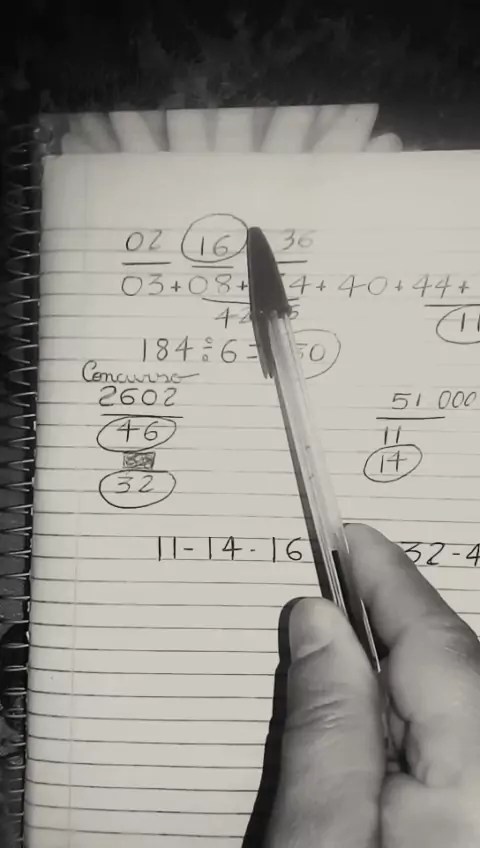 02 16 36
03+08+ 4+40+44+
42
184÷6= 30
Concurso
2602
51 000
46
11
14
32
11-14-16 32-4